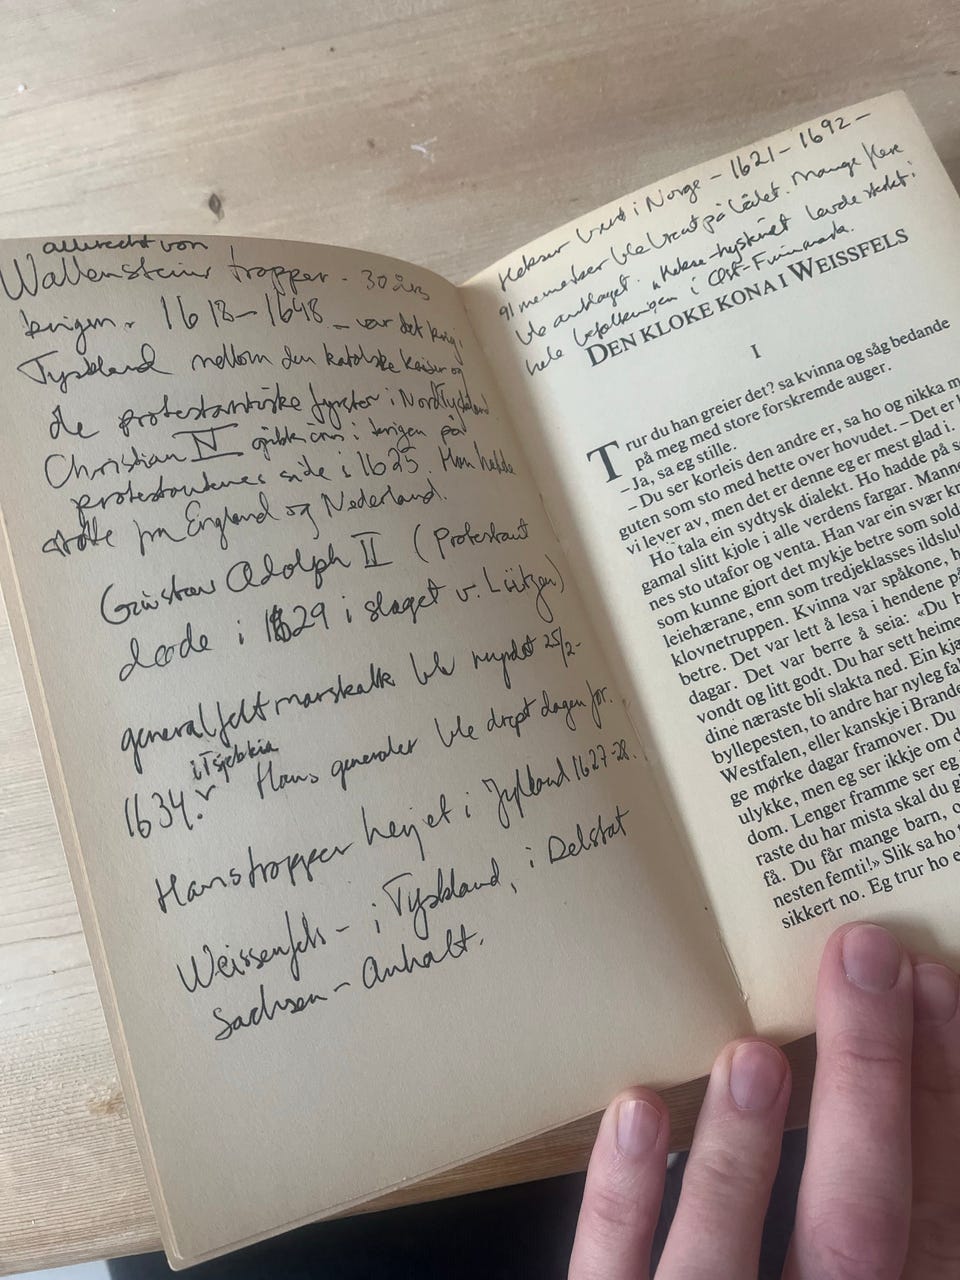 albrecht von
Wallensteins tropper - 30 års
krigen. 1618-1648 - var det krig i
Tyskland mellom den katolske keiser og
de protestantiske fyrster i Nordtyskland
Christian IV i krigen på
protestantenes side i 1625. Han hadde
støtte fra England og Nederland.
Gustav Adolph II (Protestant
døde i 1629 i slaget v. Lützen)
generalfeltmarskalk blv myrdet 25/2-
i Tsjekkia
1634. Hans generaler ble drept dagen før.
Hans tropper herjet i Jylland 1627-28.
Weissenfels - i Tyskland, i Delstat
Sachsen-Anhalt.
Hekser brent i Norge - 1621-1692 -
91 mennesker ble brent på bålet. Mange flere
ble anklaget. "Hekse-hysteriet herda sterkt i
hele befolkningen i Øst-Finnmark.
DEN KLOKE KONA I WEISSFELS
I
Trur du han greier det? sa kvinna og såg bedande
på meg med store forskremde auger.
– Ja, sa eg stille.
– Du ser korleis den andre er, sa ho og nikka m
guten som sto med hette over hovudet. – Det er
vi lever av, men det er denne eg er mest glad i.
Ho tala ein sydtysk dialekt. Ho hadde på s
gamal slitt kjole i alle verdens fargar. Manne
nes sto utafor og venta. Han var ein svær kr
som kunne gjort det mykje betre som sold
leiehærane, enn som tredjeklasses ildslu
klovnetruppen. Kvinna var spåkone, h
betre. Det var lett å lesa i hendene på
dagar. Det var berre å seia: «Du h
vondt og litt godt. Du har sett heime
dine næraste bli slakta ned. Ein kjæ
byllepesten, to andre har nyleg fal
Westfalen, eller kanskje i Brande
ge mørke dagar framover. Du
ulykke, men eg ser ikkje om d
dom. Lenger framme ser eg
raste du har mista skal du g
få. Du får mange barn, o
nesten femti!» Slik sa ho t
sikkert no. Eg trur ho e